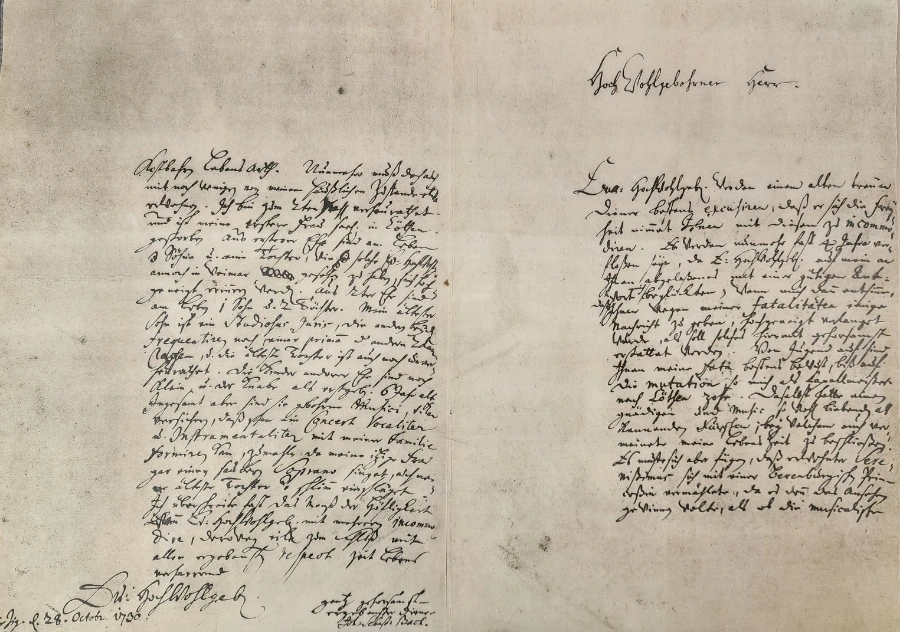 kostbahre Lebens Arth. Nunmehro muß doch auch
mit noch wenigen von meinem häußlichen Zustande etwas
erwehnen. Ich bin zum 2ten Mahl verheurathet
und ist meine erstere Frau seel. in Cöthen
gestorben. Aus ersterer Ehe sind am Leben
3 Söhne u. eine Tochter, wie solche Eu: Hochwohlgeb.
annoch in Weimar gesehen zu haben, sich hoch-
geneigt erinnern werden. Aus 2ter Ehe sind
am Leben 1 Sohn u. 2 Töchter. Mein ältester
Sohn ist ein Studiosus Juris, die andern beyde
frequentiren noch einer primam u. der andere 2dam
Classem, u. die älteste Tochter ist auch noch unver-
heurathet. Die Kinder anderer Ehe sind noch
klein, u. der Knabe als erstgebohrner 6 Jahr alt.
Insgesamt aber sind sie gebohrne Musici, u. kan
versichern, daß schon ein Concert Vocaliter
u. Instrumentaliter mit meiner Familie
formiren kan, zumahle da meine itzige Frau
gar einen saubern Soprano singet, auch mei-
ne älteste Tochter nicht schlimm einschläget.
Ich überschreite fast das Maaß der Höfligkeit
wenn Eu: Hochwohlgeb. mit mehreren incommo-
dire, derowegen eile zum Schluß mit
allen ergebensten respect zeit Lebens
verharrend
Eu: Hochwohlgeb.
d. 28. Octobr. 1730.
gantz gehorsamst-
ergebenster Diener
Joh: Sebast: Bach.
Hoch Wohlgebohrner Herr.
Eu: Hochwohlgeb. werden einem alten treuen
Diener bestens excusiren, daß er sich die Frey-
heit nimmet Ihnen mit diesen zu incommo-
diren. Es werden nunmehr fast 4 Jahre ver-
floßen seyn, da E: Hochwohlgeb. auf mein an
Ihnen abgelaßenes mit einer gütigen Ant-
wort mich beglückten; Wenn mich dann entsinne,
daß Ihnen wegen meiner Fatalitäten einige
Nachricht zu geben, hochgeneigt verlanget
wurde, als soll solches hiermit gehorsamst
erstattet werden. Von Jugend auf sind
Ihnen meine Fata bestens bewust, biß auf
die mutation, so mich als Capellmeister
nach Cöthen zohe. Daselbst hatte einen
gnädigen und Music so wohl liebenden als
kennenden Fürsten; bey welchem auch ver-
meinete meine Lebenszeit zu beschließen.
Es muste sich aber fügen, daß erwehnter Sere-
nißimus sich mit einer Berenburgischen Prin-
ceßin vermählete, da es denn das Ansehen
gewinnen wolte, als ob die musicalische